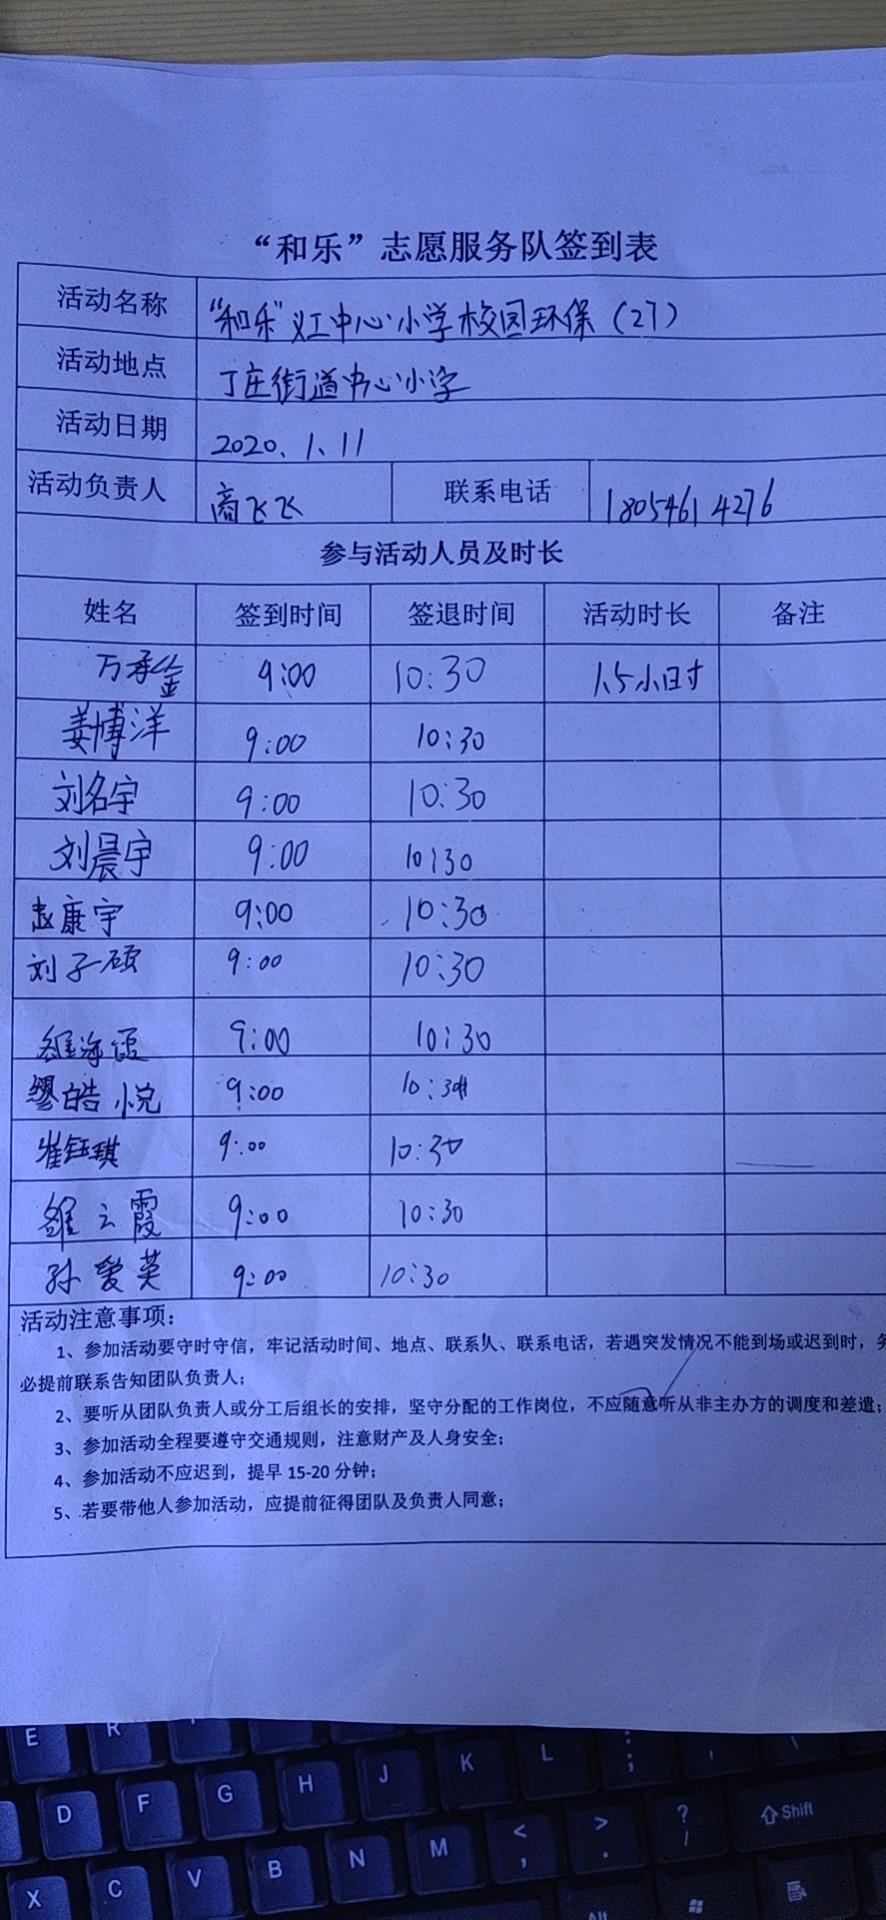 “和乐”志愿服务队签到表
活动名称 “和乐”义工中心小学校园环保（27）
活动地点 丁庄街道中心小学
活动日期 2020.1.11
活动负责人 商飞飞 联系电话 18054614276
参与活动人员及时长
姓名 签到时间 签退时间 活动时长 备注
万承金 9:00 10:30 1.5小时
姜博洋 9:00 10:30
刘名宇 9:00 10:30
刘晨宇 9:00 10:30
赵康宇 9:00 10:30
刘子硕 9:00 10:30
9:00 10:30
缪皓悦 9:00 10:30
崔钰琪 9:00 10:30
雒云霞 9:00 10:30
孙爱英 9:00 10:30
活动注意事项：
1、参加活动要守时守信，牢记活动时间、地点、联系人、联系电话，若遇突发情况不能到场或迟到时，务
必提前联系告知团队负责人；
2、要听从团队负责人或分工后组长的安排，坚守分配的工作岗位，不应随意听从非主办方的调度和差遣；
3、参加活动全程要遵守交通规则，注意财产及人身安全；
4、参加活动不应迟到，提早 15-20 分钟；
5、若要带他人参加活动，应提前征得团队及负责人同意；
E R
D F G H J K L : ;
X C V B N M < , > . ? / Shift
Alt